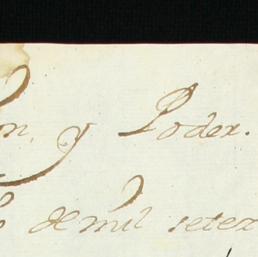 y Poder.
de mil setez